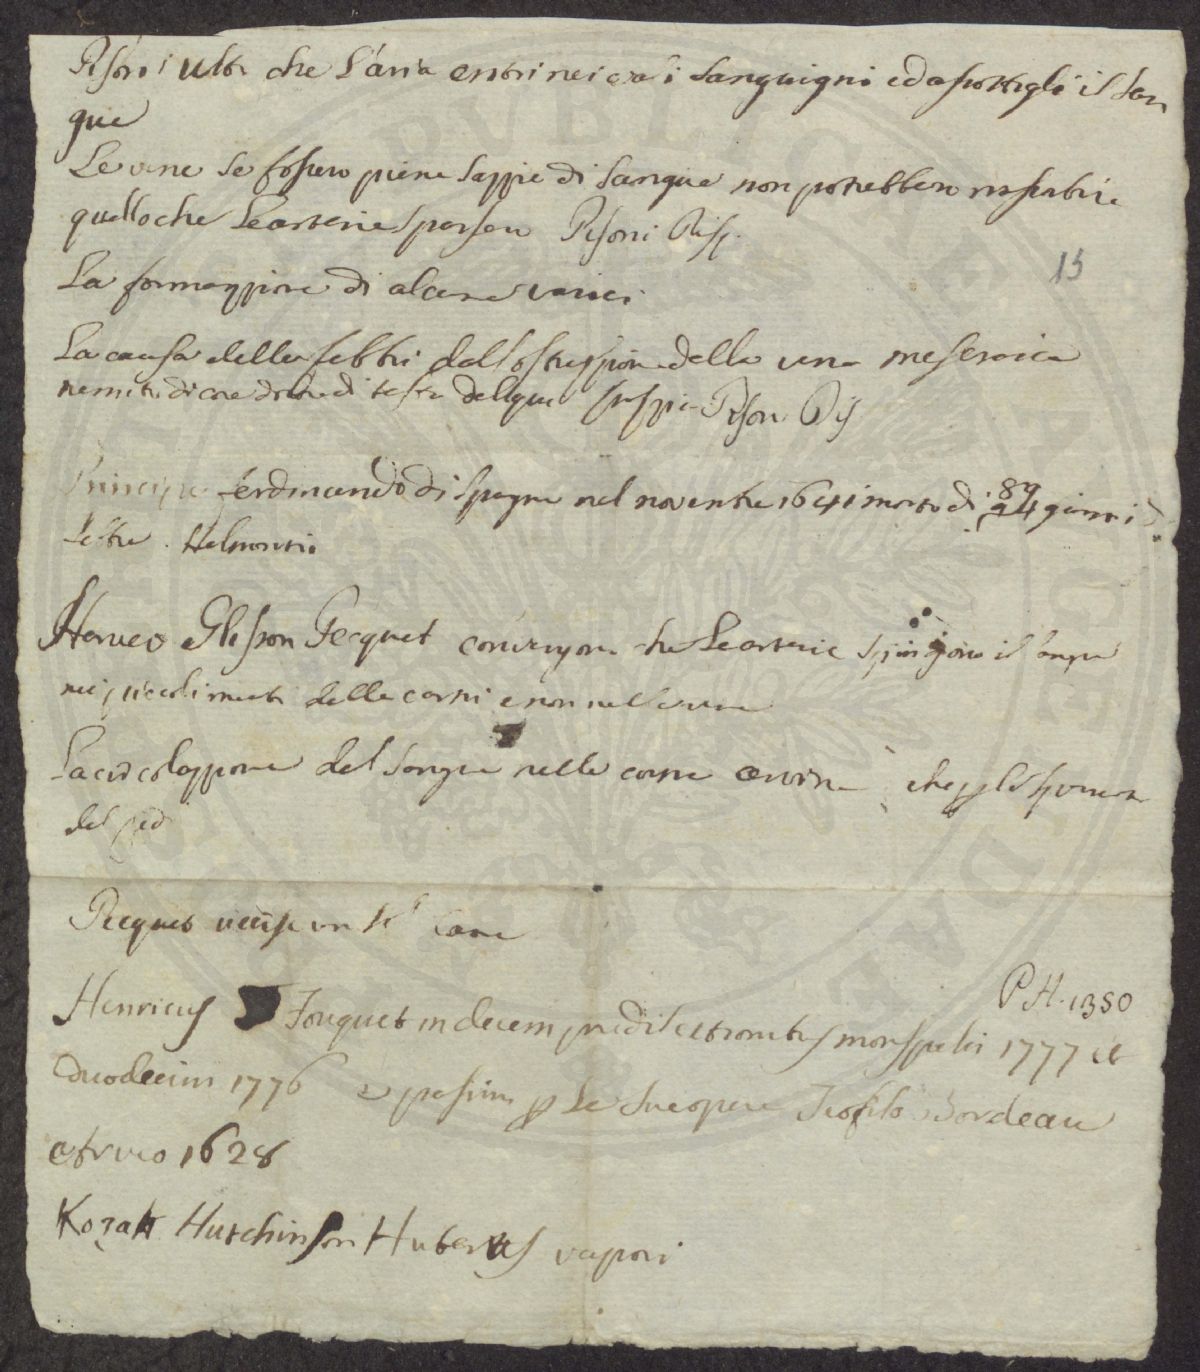 Pisoni ultr che l'aria entri nei vasi sanguigni ed assottigli il San
gue
Le vene se fossero piene zappe di sangue non potrebbero riassorbire
quello che le arterie spargono Pisoni Risp.
15
La formazzione di alcune varici
La causa delle febbri dall'ostruzzione delle vene meseraica
di testa Pison Ris
Principe ferdinando di Spagna nel novembre 1641 morto di 89 24 giorni di
febre. Helmontio
Harveo Glisson Pecquet convengono che le arterie spingono il sangue
nei piccoli meati delle carni e non nelle vene
La circolazzione del Sangue nelle carne
del
Pecquet uccise un cane
P.H. 1350
Henricus Fouquet in decem prediletionibus monspelii 1777 et
duodecim 1776 e passim le sue opere Teofilo Bordeau
Arveo 1628
Kozak Hutchinson Huberus vapori